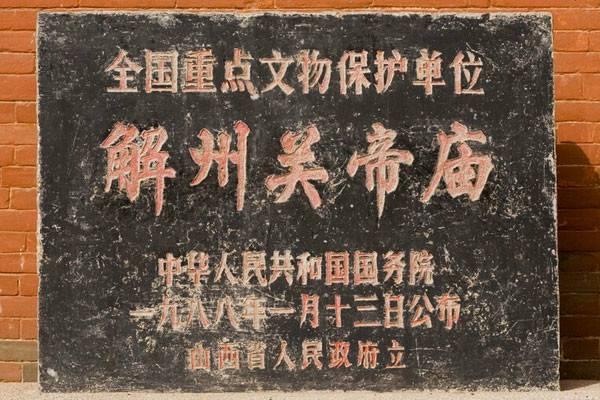 全国重点文物保护单位
解州关帝庙
中华人民共和国国务院
一九八八年一月十三日公布
山西省人民政府立